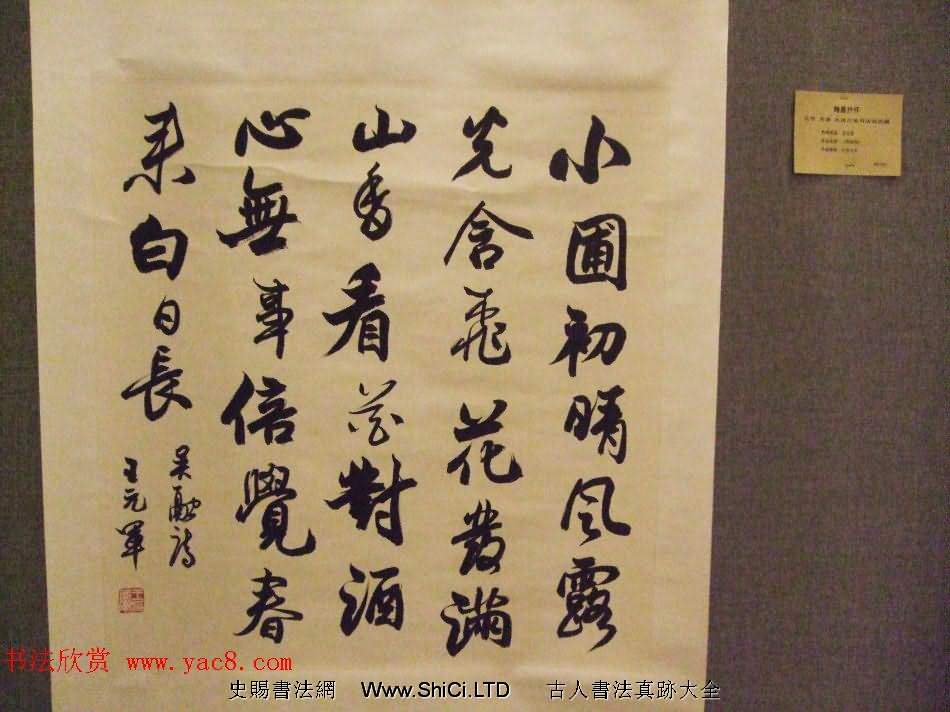 小圃初晴风露
光含飛花發滿
山香看花對酒
心無事倍覺春
来白日長
吴融詩
王元軍
翰墨抒怀
书法欣赏 www.yac8.com
史賜書法網 Www.ShiCi.LTD 古人書法真跡大全